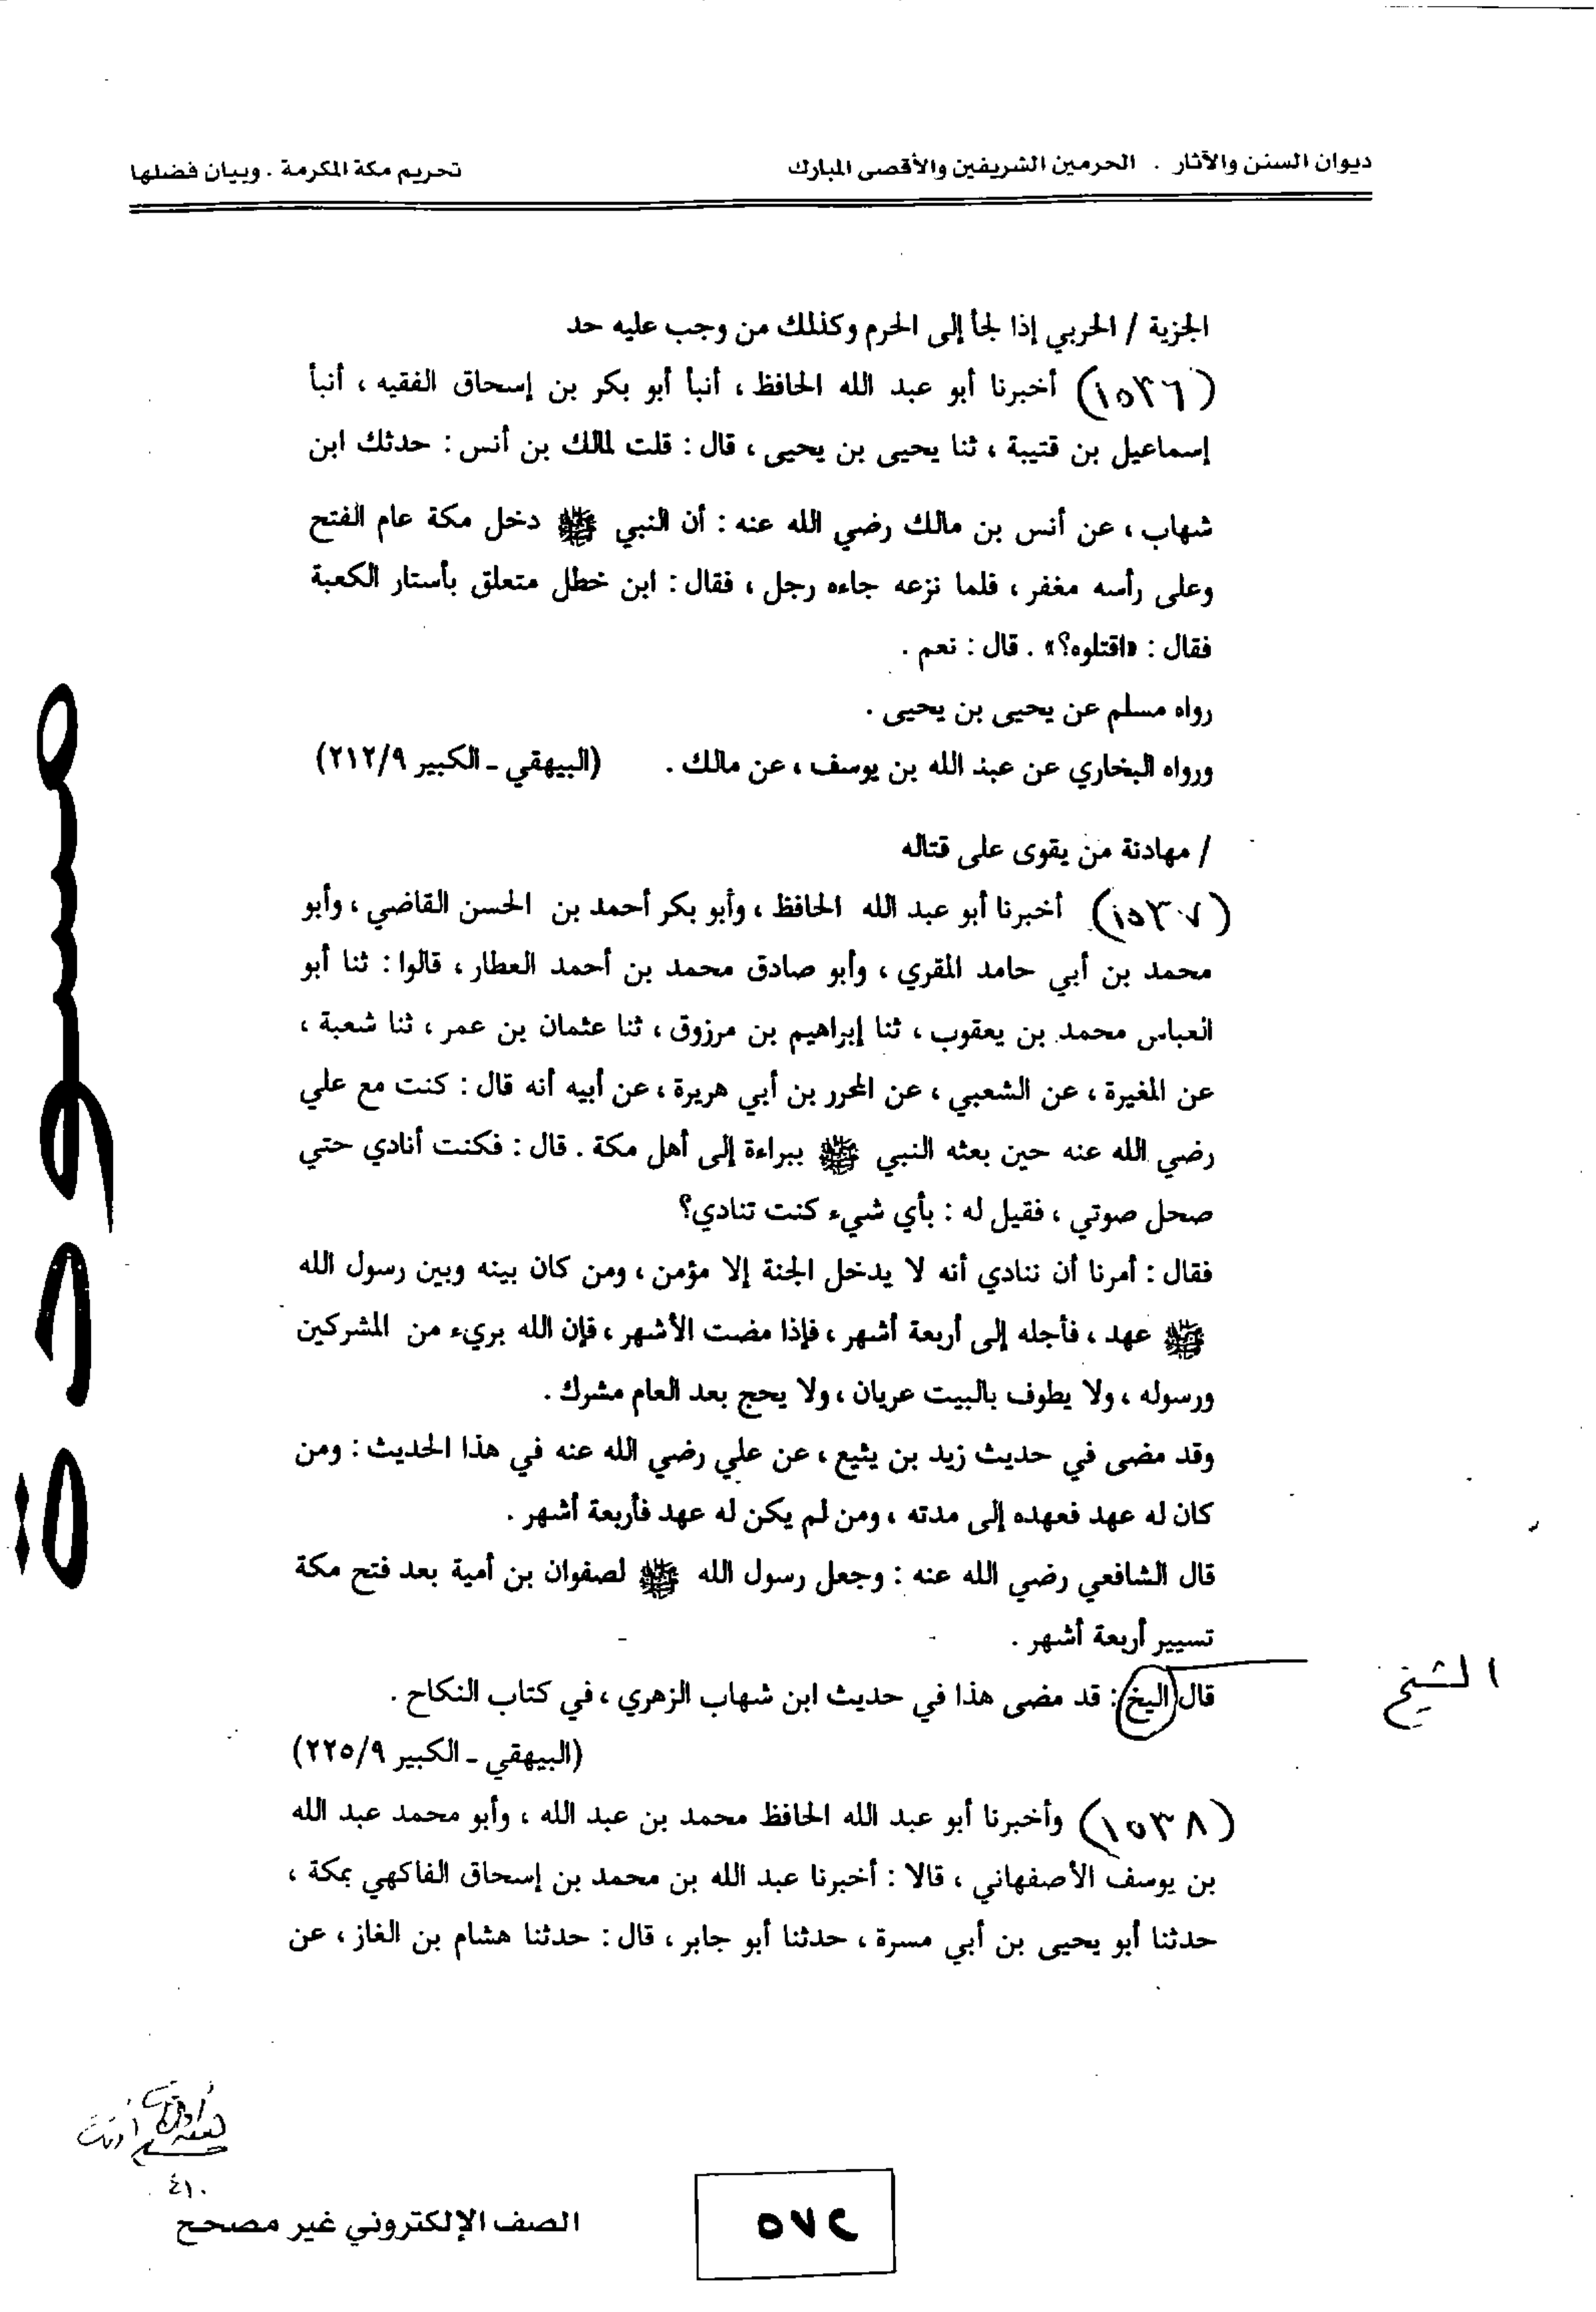 ديوان السنن والآثار . الحرمين الشريفين والأقصى المبارك
تحريم مكة المكرمة . وبيان فضلها
الجزية / الحربي إذا لجأ إلى الحرم وكذلك من وجب عليه حد
(١٥٣٦) أخبرنا أبو عبد الله الحافظ ، أنبأ أبو بكر بن إسحاق الفقيه ، أنبأ
إسماعيل بن قتيبة ، ثنا يحيى بن يحيى ، قال : قلت لمالك بن أنس : حدثك ابن
شهاب ، عن أنس بن مالك رضي الله عنه : أن النبي ﷺ دخل مكة عام الفتح
وعلى رأسه مغفر ، فلما نزعه جاءه رجل ، فقال : ابن خطل متعلق بأستار الكعبة
فقال : «اقتلوه؟» . قال : نعم .
رواه مسلم عن يحيى بن يحيى .
ورواه البخاري عن عبد الله بن يوسف ، عن مالك . (البيهقي ـ الكبير ٢١٢/٩)
/ مهادنة من يقوى على قتاله
(١٥٣٧) أخبرنا أبو عبد الله الحافظ ، وأبو بكر أحمد بن الحسن القاضي ، وأبو
محمد بن أبي حامد المقري ، وأبو صادق محمد بن أحمد العطار ، قالوا : ثنا أبو
العباس محمد بن يعقوب ، ثنا إبراهيم بن مرزوق ، ثنا عثمان بن عمر ، ثنا شعبة ،
عن المغيرة ، عن الشعبي ، عن المحرر بن أبي هريرة ، عن أبيه أنه قال : كنت مع علي
رضي الله عنه حين بعثه النبي ﷺ ببراءة إلى أهل مكة . قال : فكنت أنادي حتي
صحل صوتي ، فقيل له : بأي شيء كنت تنادي؟
فقال : أمرنا أن ننادي أنه لا يدخل الجنة إلا مؤمن ، ومن كان بينه وبين رسول الله
ﷺ عهد ، فأجله إلى أربعة أشهر ، فإذا مضت الأشهر ، فإن الله بريء من المشركين
ورسوله ، ولا يطوف بالبيت عريان ، ولا يحج بعد العام مشرك .
وقد مضى في حديث زيد بن يثيع ، عن علي رضي الله عنه في هذا الحديث : ومن
كان له عهد فعهده إلى مدته ، ومن لم يكن له عهد فأربعة أشهر .
قال الشافعي رضي الله عنه : وجعل رسول الله ﷺ لصفوان بن أمية بعد فتح مكة
تسيير أربعة أشهر .
قال اليخ : قد مضى هذا في حديث ابن شهاب الزهري ، في كتاب النكاح .
الشيخ
(البيهقي ـ الكبير ٢٢٥/٩)
(١٥٣٨) وأخبرنا أبو عبد الله الحافظ محمد بن عبد الله ، وأبو محمد عبد الله
بن يوسف الأصفهاني ، قالا : أخبرنا عبد الله بن محمد بن إسحاق الفاكهي بمكة ،
حدثنا أبو يحيى بن أبي مسرة ، حدثنا أبو جابر ، قال : حدثنا هشام بن الغاز ، عن
مسودة
٤١٠
الصف الإلكتروني غير مصحح
٥٧٢